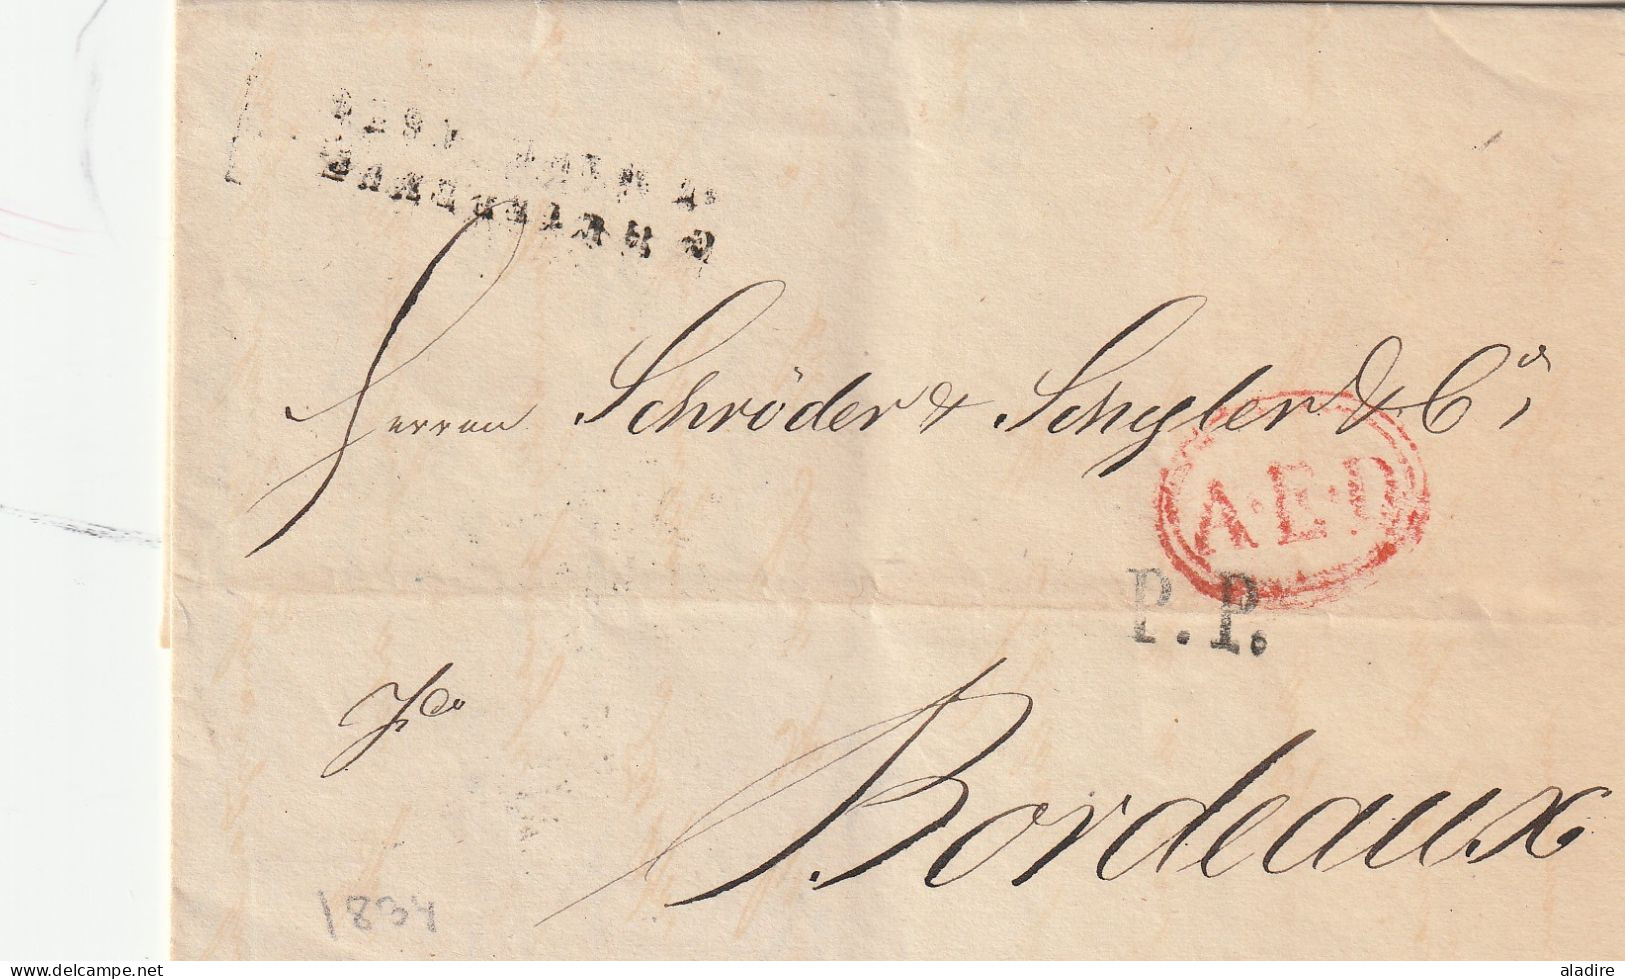 Herren Schröder & Schyler & Co,
A·E·D
P.P.
fco
Bordeaux
1834
delcampe.net
aladire